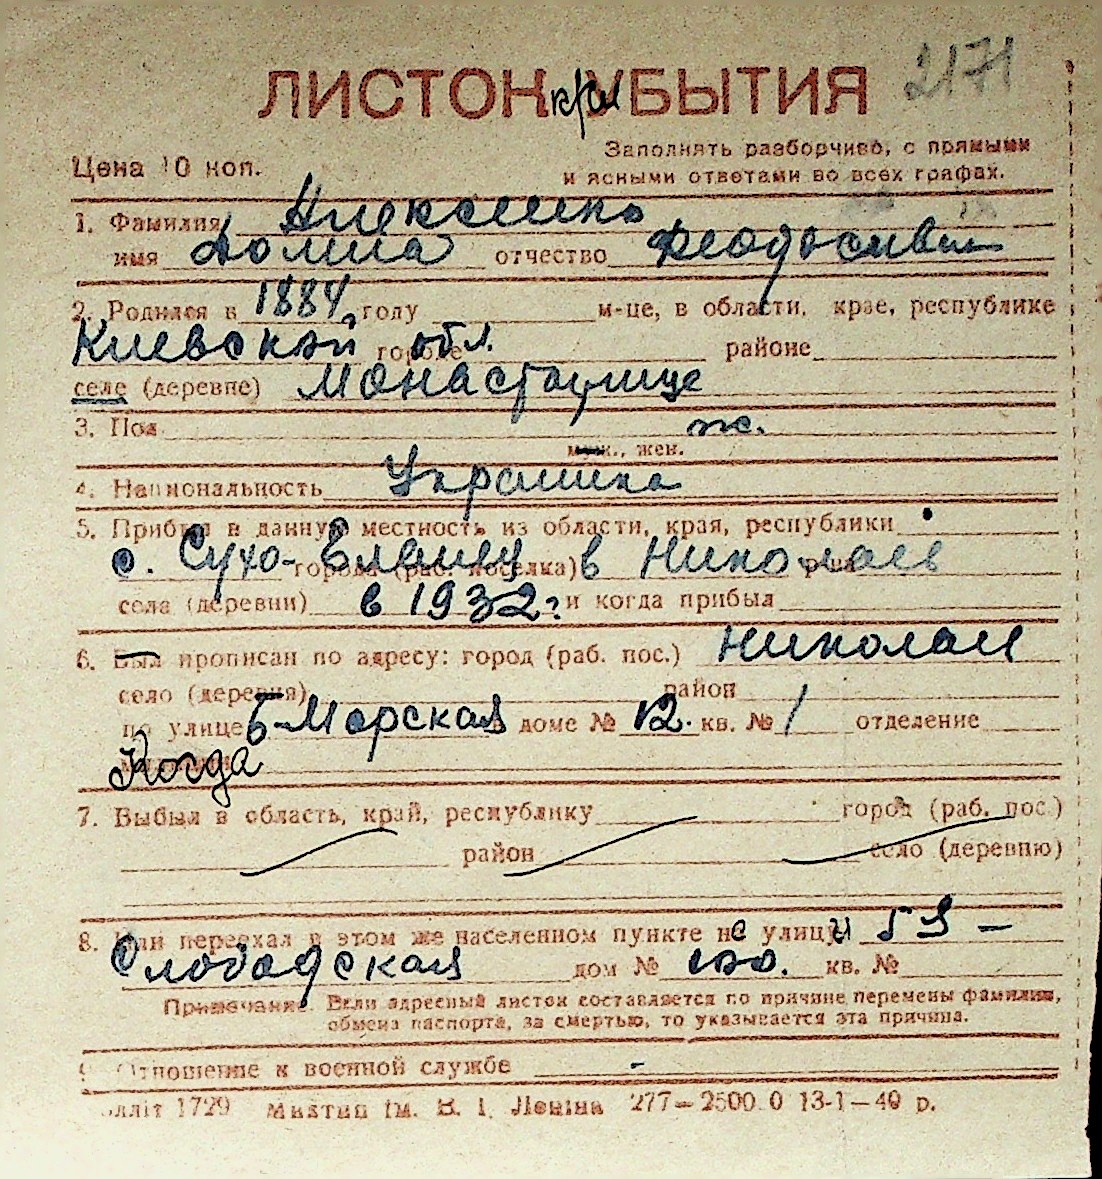 ЛИСТОК УБЫТИЯ 2171
Цена 10 коп.
Заполнять разборчиво, с прямыми
и ясными ответами во всех графах.
1. Фамилия Алексеенко
имя Домна отчество Феодосиев
2. Родился в 1884 году м-це, в области, крае, республике
Киевской обл. городе районе
селе (деревне) Монастырище
3. Пол ж.
муж., жен.
4. Национальность Украинка
5. Прибыл в данную местность из области, края, республики
с. Сухо- города (раб. поселка) в Николаев
села (деревни) в 1932 г. и когда прибыл
6. Был прописан по адресу: город (раб. пос.) Николаев
село (деревня) район
по улице Б-Морская доме № 12. кв. № 1 отделение
Когда
7. Выбыл в область, край, республику город (раб. пос.)
район село (деревню)
8. Или переехал в этом же населенном пункте на улицу 53 –
Слободская дом № кв. №
Примечание. Если адресный листок составляется по причине перемены фамилии,
обмена паспорта, за смертью, то указывается эта причина.
9. Отношение к военной службе -
1729 Миктип ім. В. І. Леніна 277—2500.0 13-1—40 р.